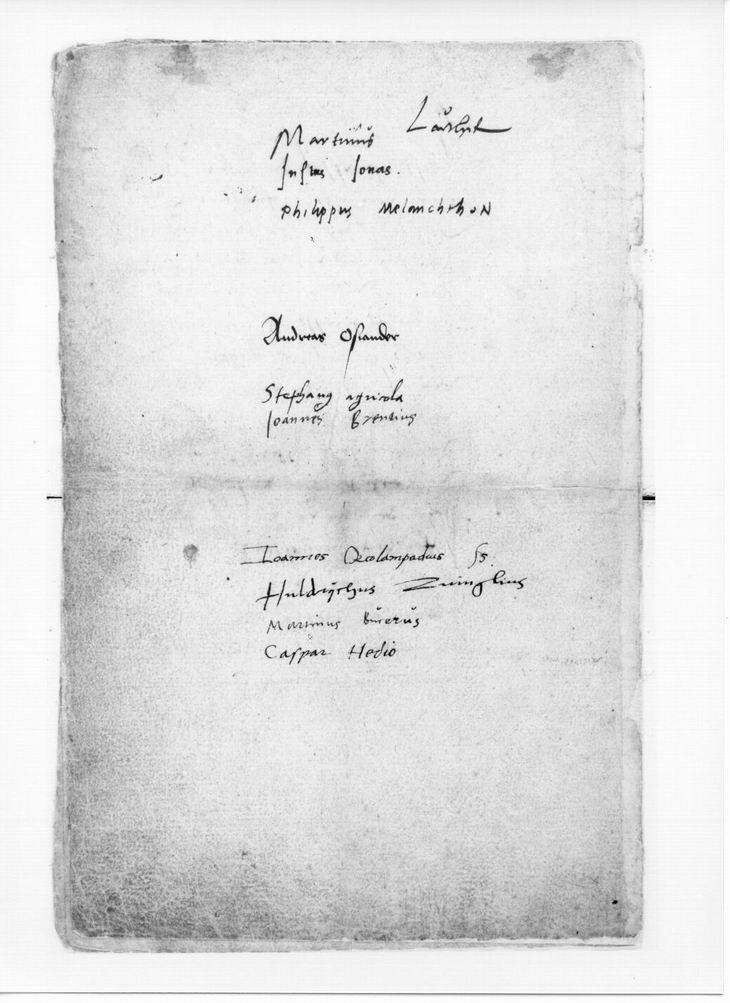 Martinus Luther
Justus Jonas.
Philippus Melanchthon
Andreas Osiander
Stephanus agricola
Joannes Brentius
Ioannes Oecolampadius ss
Huldrychus Zuinglius
Martinus Bucerus
Caspar Hedio